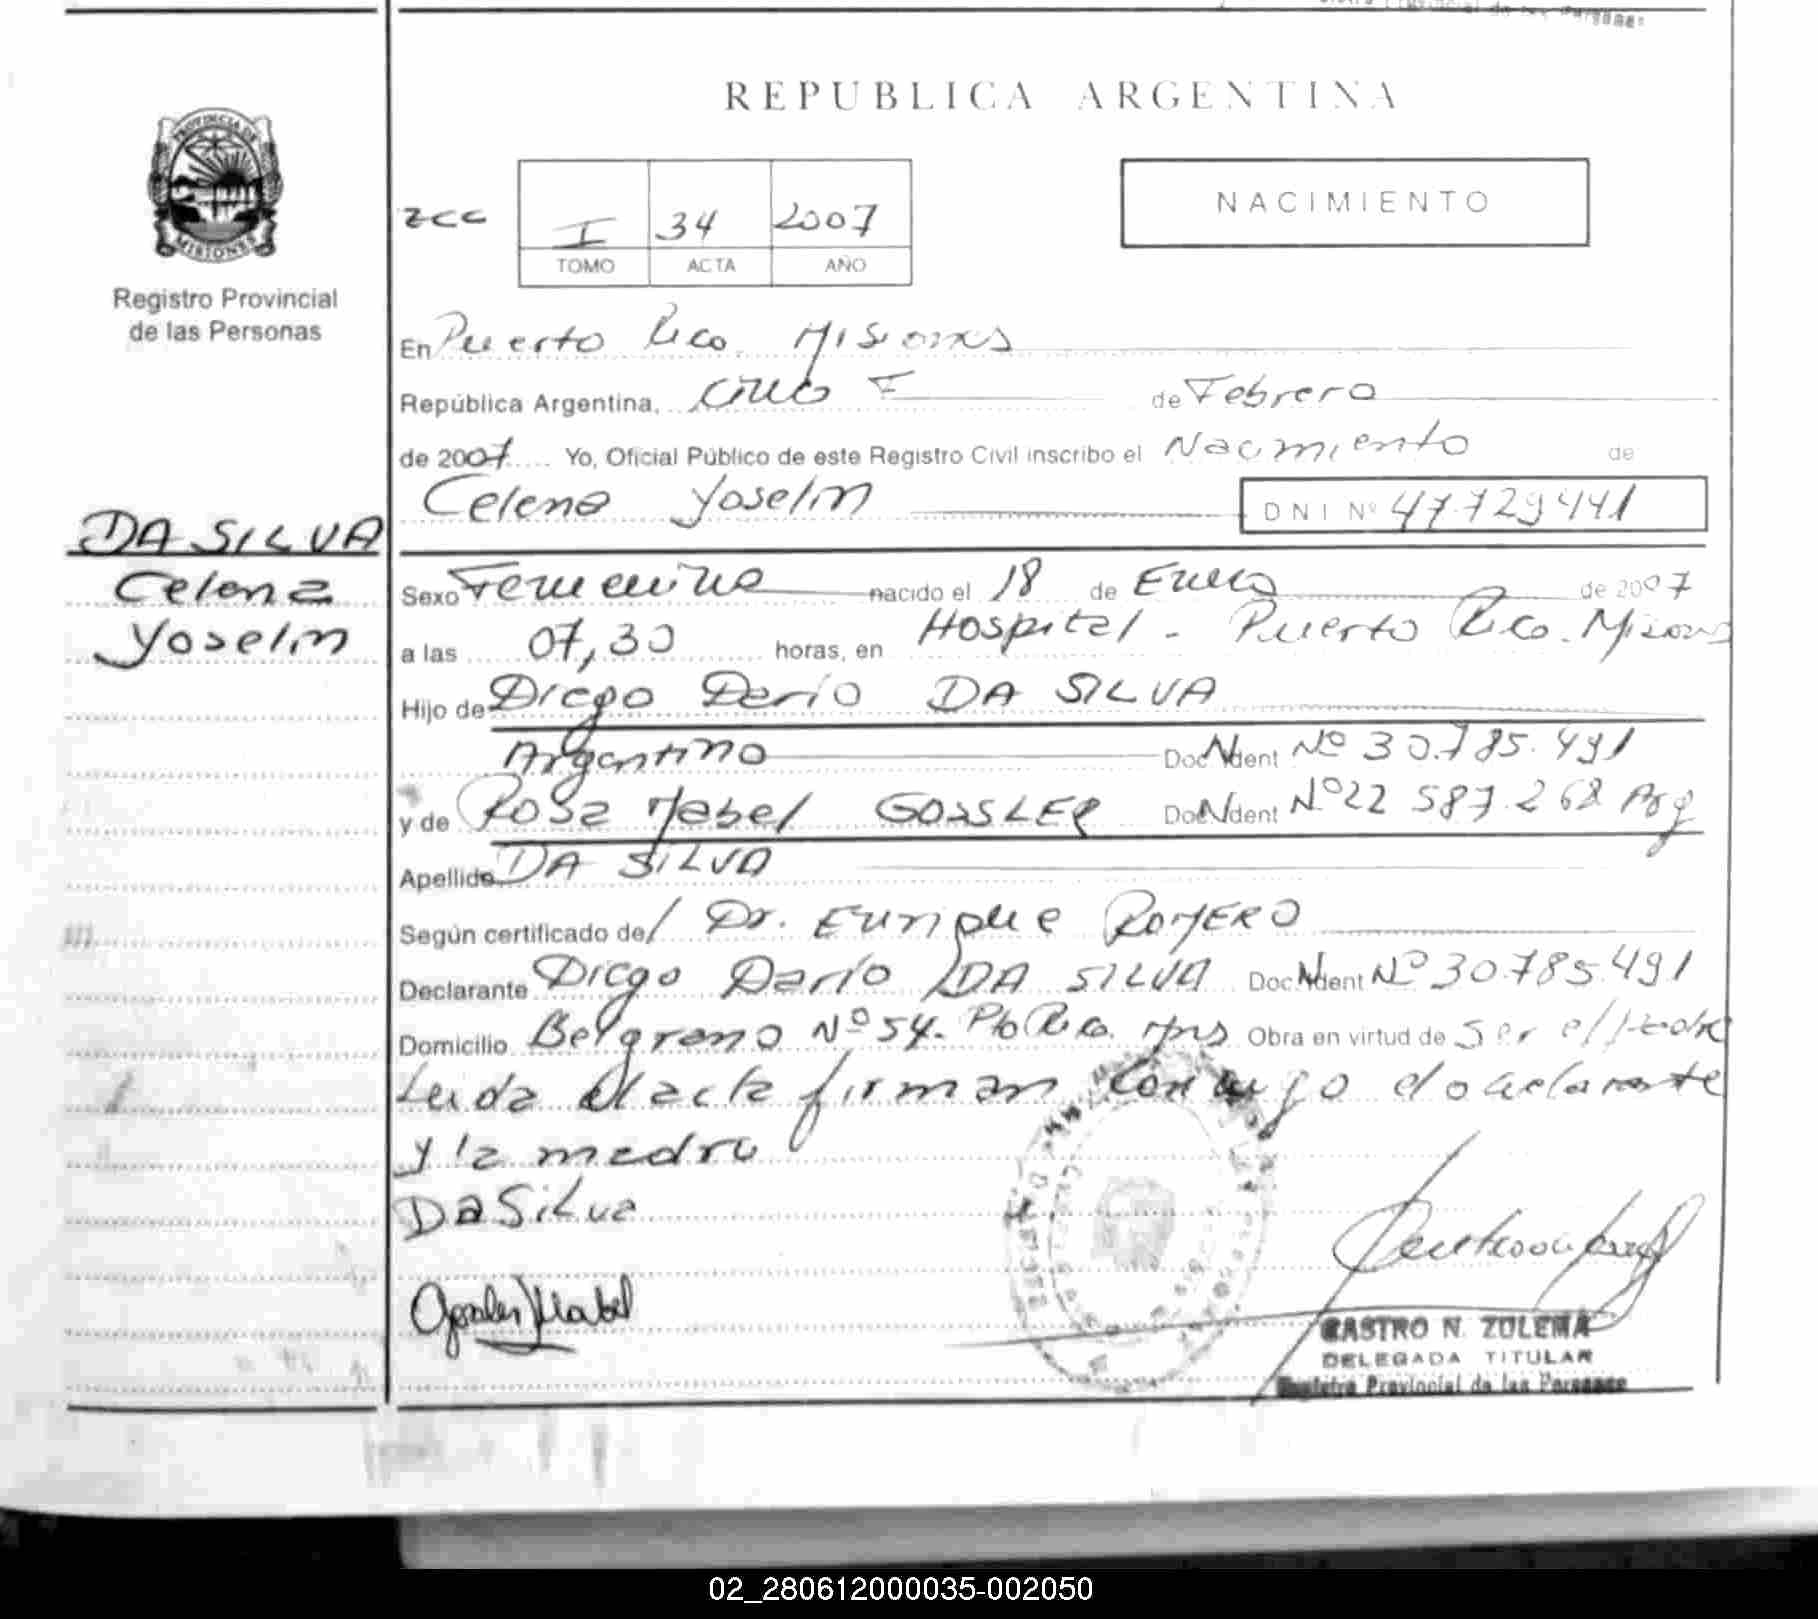 REPUBLICA ARGENTINA
PROVINCIA DE
MISIONES
Registro Provincial
de las Personas
zcc
I 34 2007
TOMO ACTA AÑO
NACIMIENTO
En Puerto Rico Misiones
República Argentina, cinco de Febrero
de 2007 Yo, Oficial Público de este Registro Civil inscribo el Nacimiento de
Celena Yoselin
DNI Nº 47.729.441
DA SILVA
Celena
Yoselin
Sexo Femenino nacido el 18 de Enero de 2007
a las 07,30 horas, en Hospital - Puerto Rico. Misiones
Hijo de Diego Dario DA SILVA
Argentino Doc N Ident Nº 30.785.491
y de Rosa Mabel GOSSLER Doc N Ident Nº 22 587.268 Arg
Apellido DA SILVA
Según certificado de / Dr. Enrique ROMERO
Declarante Diego Darío DA SILVA Doc N Ident Nº 30.785.491
Domicilio Belgrano Nº 54. Pto Rico. Mns Obra en virtud de Ser el padre
Leida el acta firman conmigo el declarante
y la madre
DaSilva
Mabel
CASTRO N. ZULEMA
DELEGADA TITULAR
Registro Provincial de las Personas
02_280612000035-002050